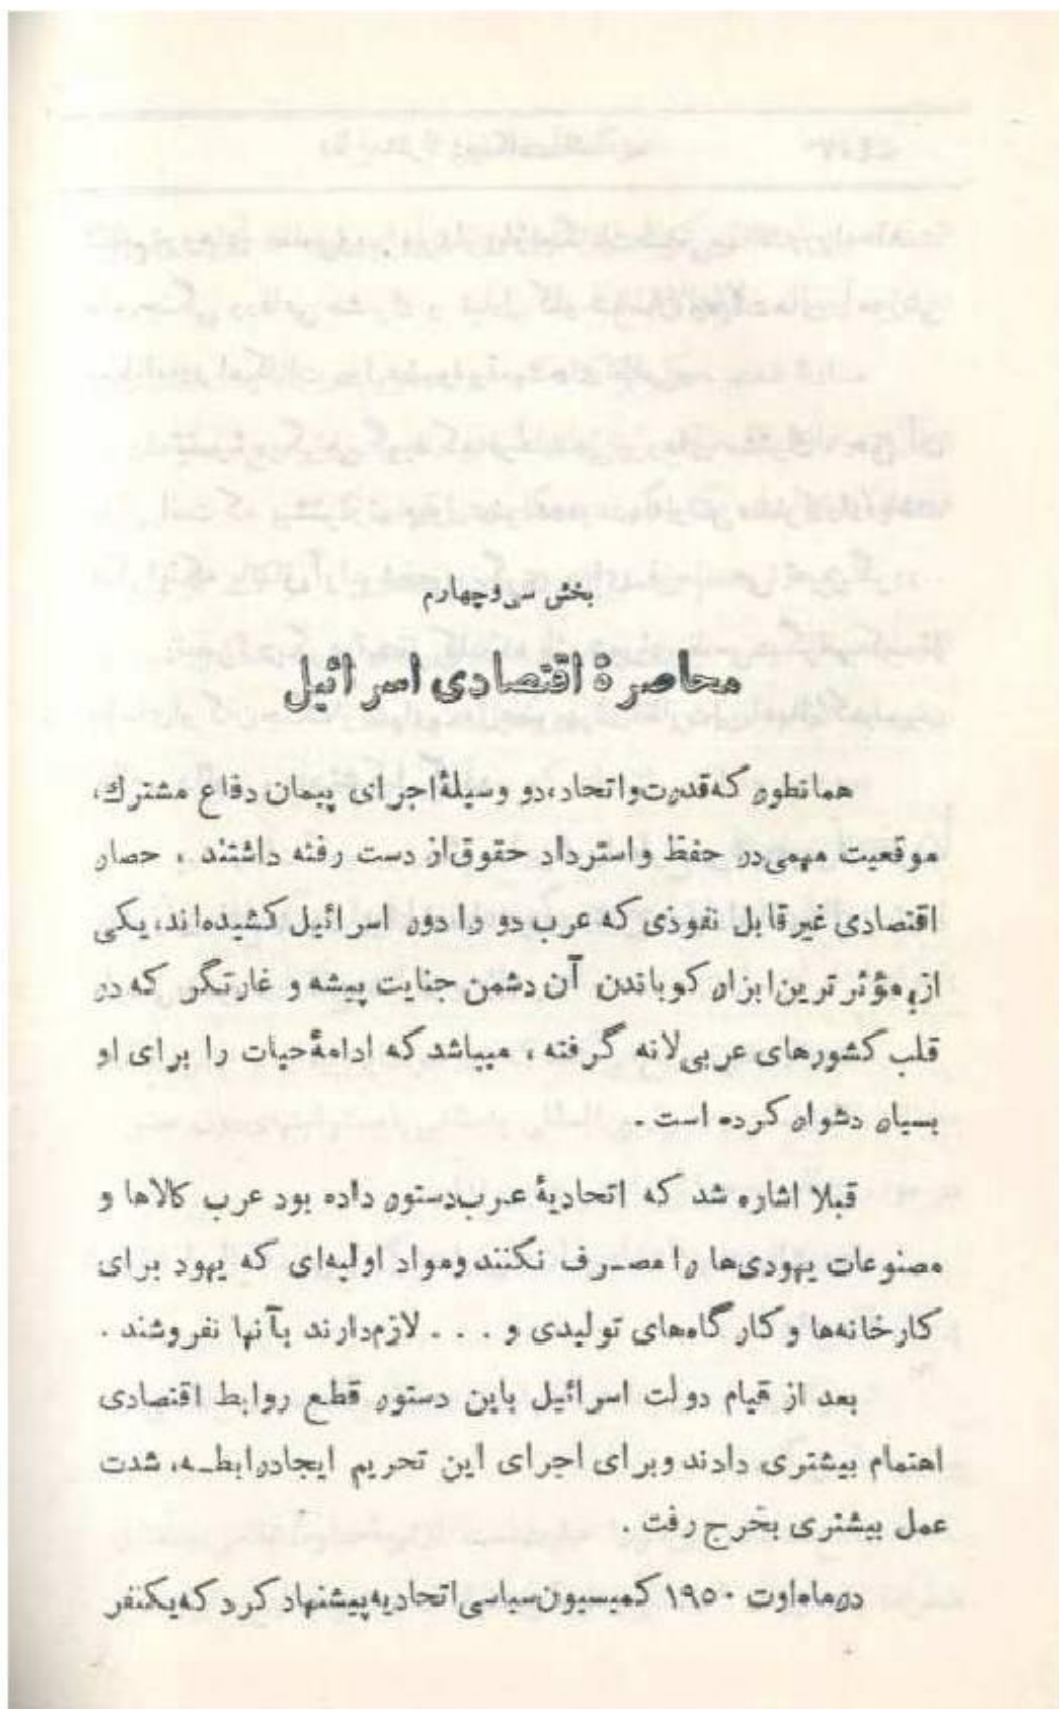 بخش سی‌و‌چهارم
محاصرۀ اقتصادی اسرائیل
همانطور که قدرت و اتحاد، دو وسیلۀ اجرای پیمان دفاع مشترك،
موقعیت مهمی در حفظ و استرداد حقوق از دست رفته داشتند ، حصار
اقتصادی غیرقابل نفوذی که عرب دو را دور اسرائیل کشیده‌اند، یکی
از مؤثر ترین ابزار کوباندن آن دشمن جنایت پیشه و غارتگر که در
قلب کشورهای عربی لانه گرفته ، میباشد که ادامۀ حیات را برای او
بسیار دشوار کرده است .
قبلا اشاره شد که اتحادیۀ عرب دستور داده بود عرب کالاها و
مصنوعات یهودی‌ها را مصرف نکنند و مواد اولیه‌ای که یهود برای
کارخانه‌ها و کارگاه‌های تولیدی و . . . لازم دارند بآنها نفروشند .
بعد از قیام دولت اسرائیل باین دستور قطع روابط اقتصادی
اهتمام بیشتری دادند و برای اجرای این تحریم ایجاد رابطه، شدت
عمل بیشتری بخرج رفت .
در ماه اوت ۱۹۵۰ کمیسیون سیاسی اتحادیه پیشنهاد کرد که یکنفر